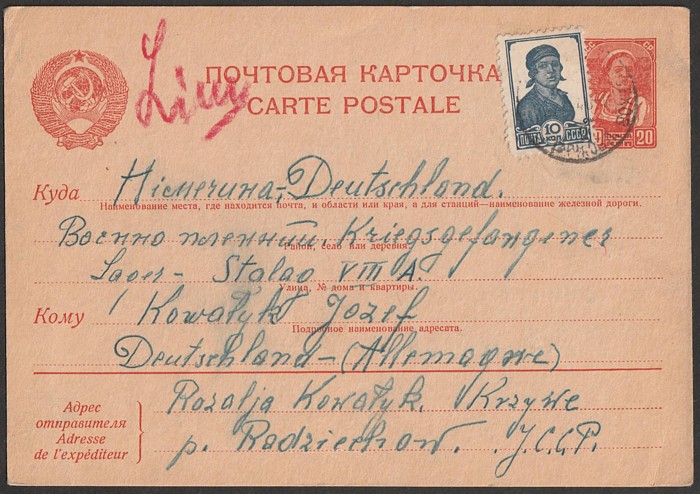 ПОЧТОВАЯ КАРТОЧКА
CARTE POSTALE
ПОЧТА 10 КОП. СССР
20
Куда Німеччина, Deutschland.
Наименование места, где находится почта, и области или края, а для станций—наименование железной дороги.
Военно пленний, Kriegsgefangener
Район, село или деревня.
Lager- Stalag VIII A.
Улица, № дома и квартиры.
Кому Kowałyk Jozef
Подробное наименование адресата.
Deutschland-(Allemagne)
Адрес отправителя
Adresse de l'expéditeur
Rozalja Kowałyk. Krzywe
p. Radziechow. J.C.C.P.